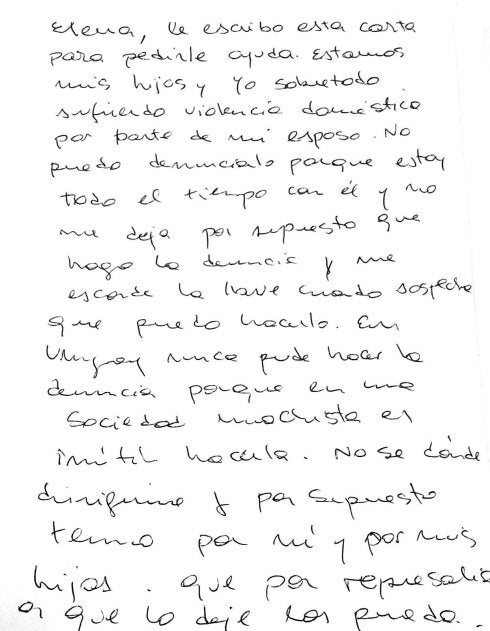 Elena, le escribo esta carta
para pedirle ayuda. Estamos
mis hijos y yo sobretodo
sufriendo violencia doméstica
por parte de mi esposo. No
puedo denuncialo porque estoy
todo el tiempo con él y no
me deja por supuesto que
haga la denuncia y me
esconde la llave cuando sospecha
que puedo hacerlo. En
Uruguay nunca pude hacer la
denuncia porque en una
sociedad machista es
inútil hacerla. No se dónde
dirigirme y por supuesto
temo por mí y por mis
hijos. que por represalia
a que lo deje los pueda.